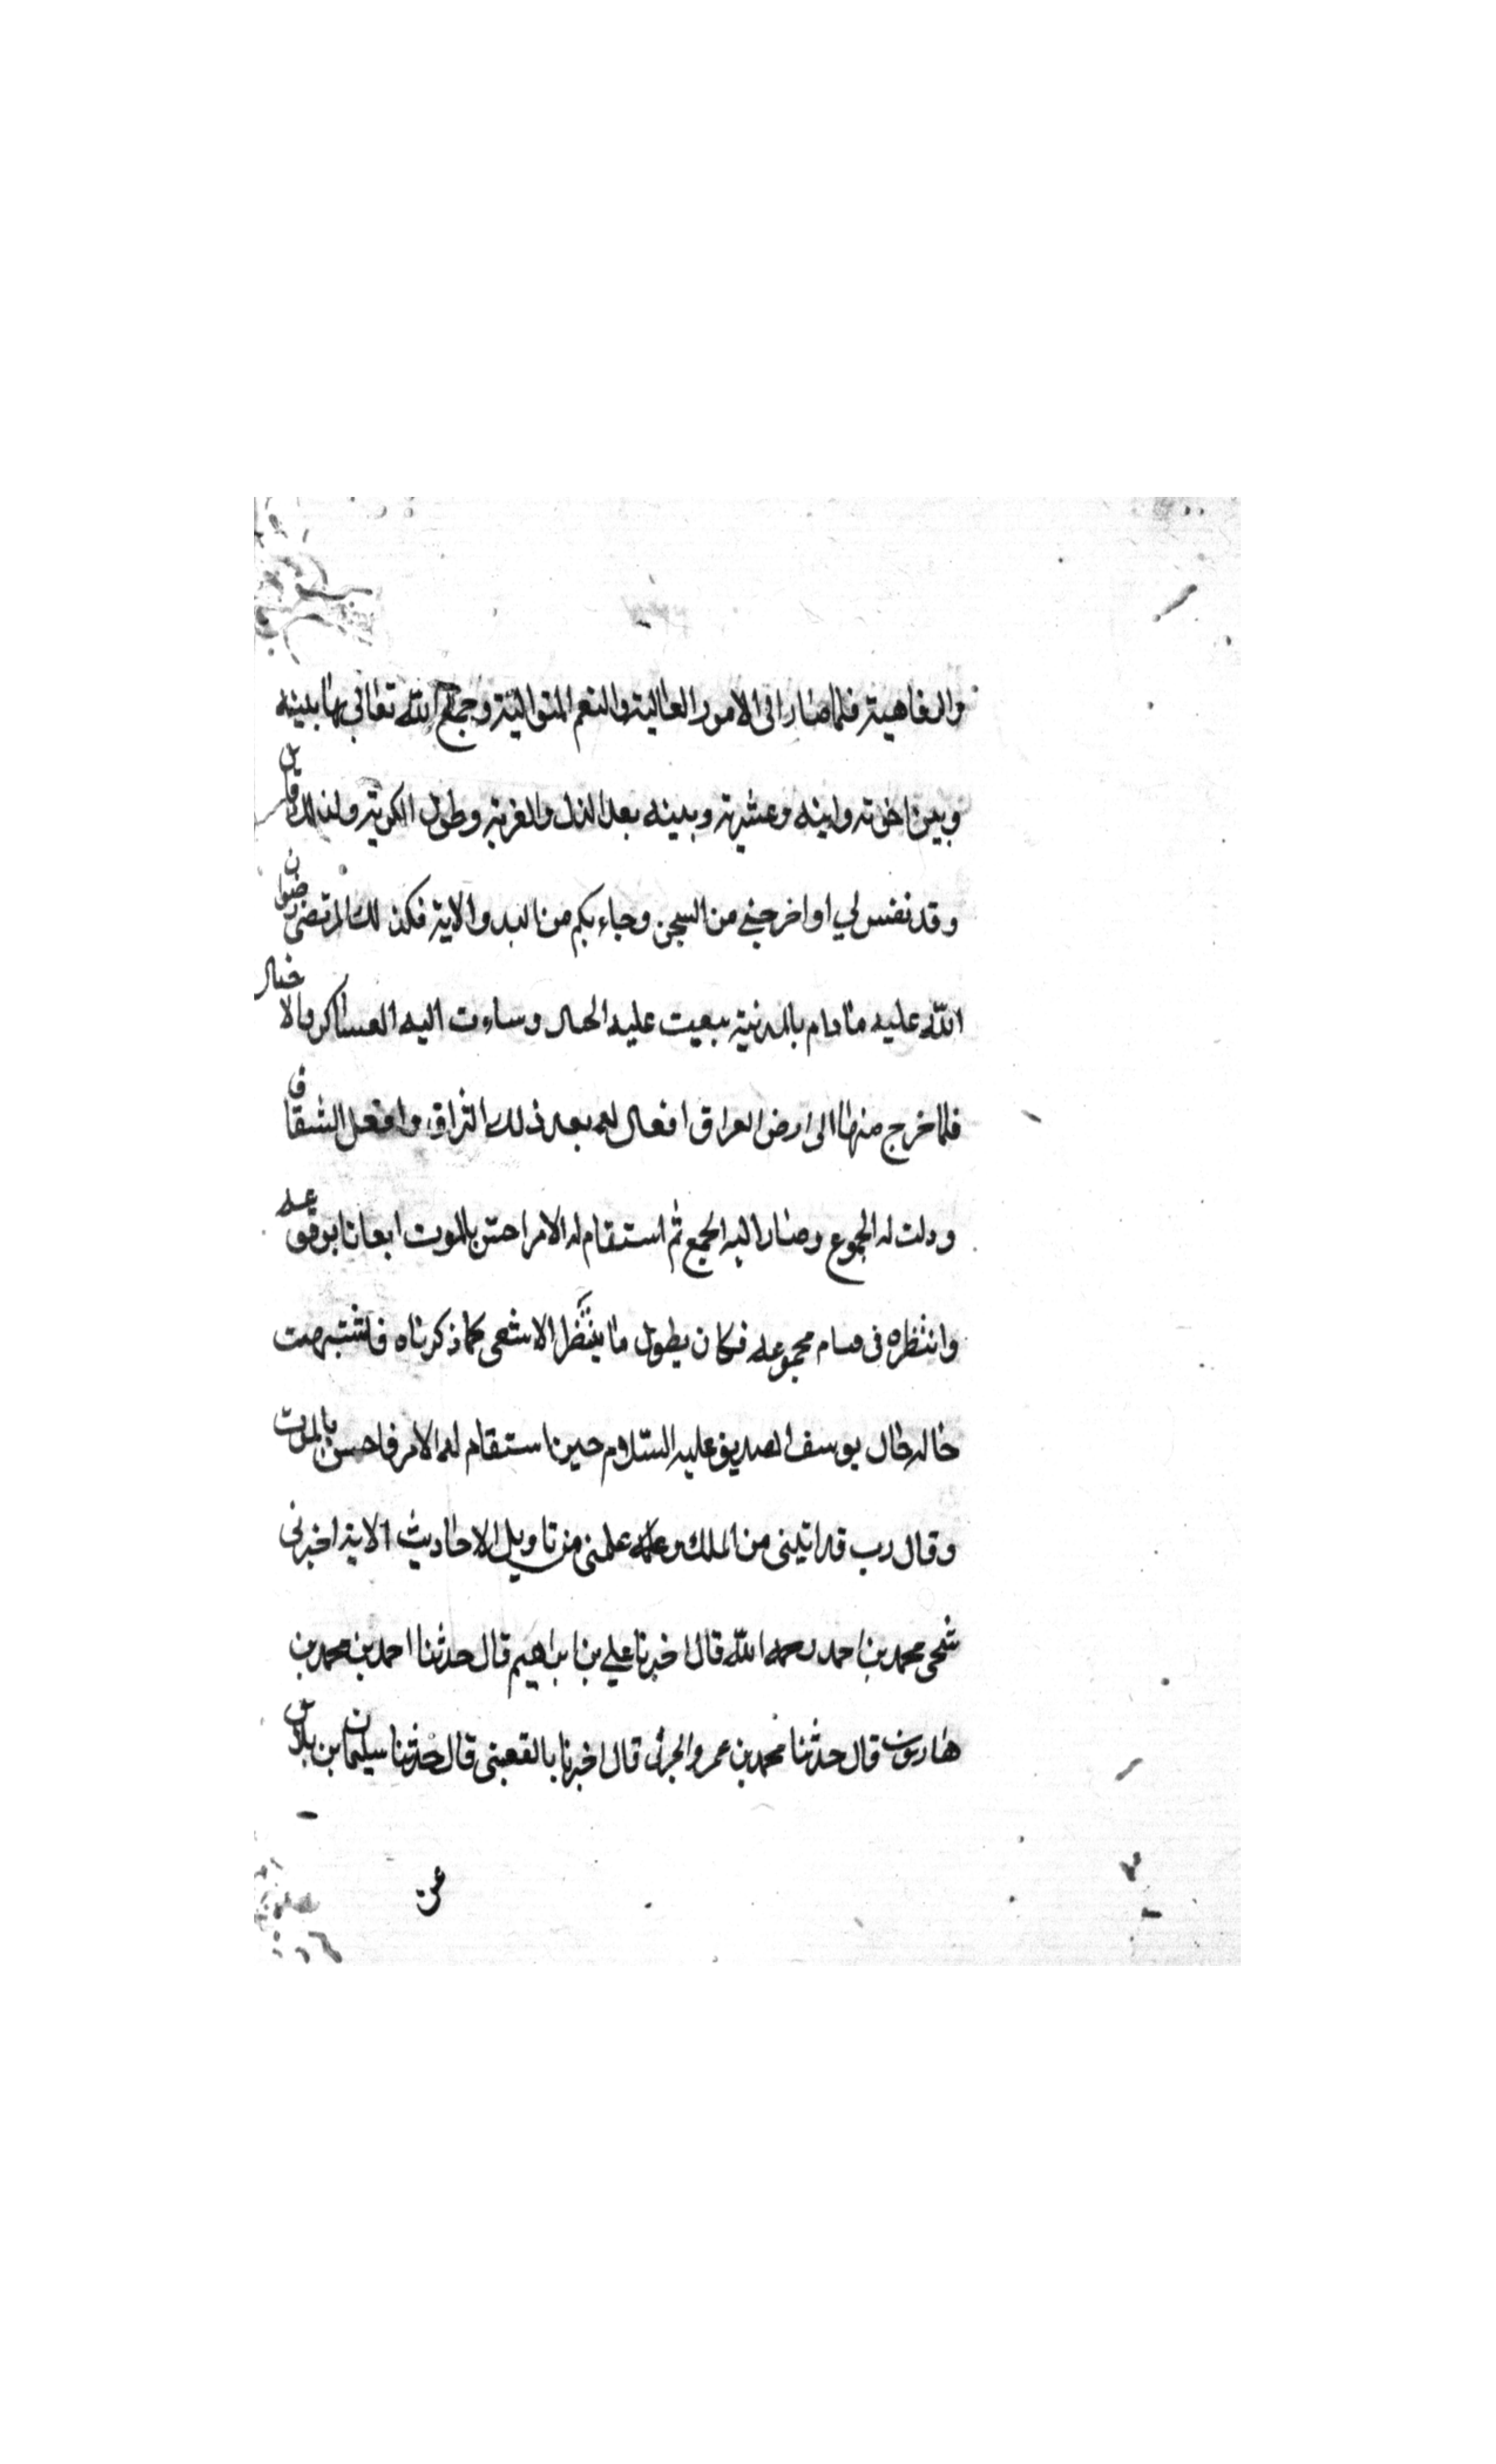 والرفاهية فلما صار الى الامور العالية والنعم المتوالية وجمع الله تعالى بها بينه
وبين اخوته وابنه وعشيرته وبينه بعد الذل والغربة وطول الكربة ولذلك قا
وقد نفس لي او اخرجني من السجن وجاء بكم من البدو الاية فكذلك المرتضى رضوان
الله عليه ما دام بالمدينة عليه الحال وساءت اليه العساكر والا
فلما خرج منها الى ارض العراق له بعد ذلك الشقاق
ودلت له الجموع وصار اليه الجميع ثم استقام له الامر احس بالموت
وانتظره في مجموعه فكان يطول ما ينتظر الاشقى كما ذكرناه فاشتبهت
حاله حال يوسف الصديق عليه السلام حين استقام له الامر فاحس بالموت
وقال رب قد اتيتني من الملك وعلمتني من تاويل الاحاديث الاية اخبرني
شيخي محمد بن احمد رحمه الله قال اخبرنا علي بن ابراهيم قال حدثنا احمد بن محمد بن
هارون قال حدثنا محمد بن عمرو قال اخبرنا بالقعبنى قال حدثنا سليمان بن بلال
عن